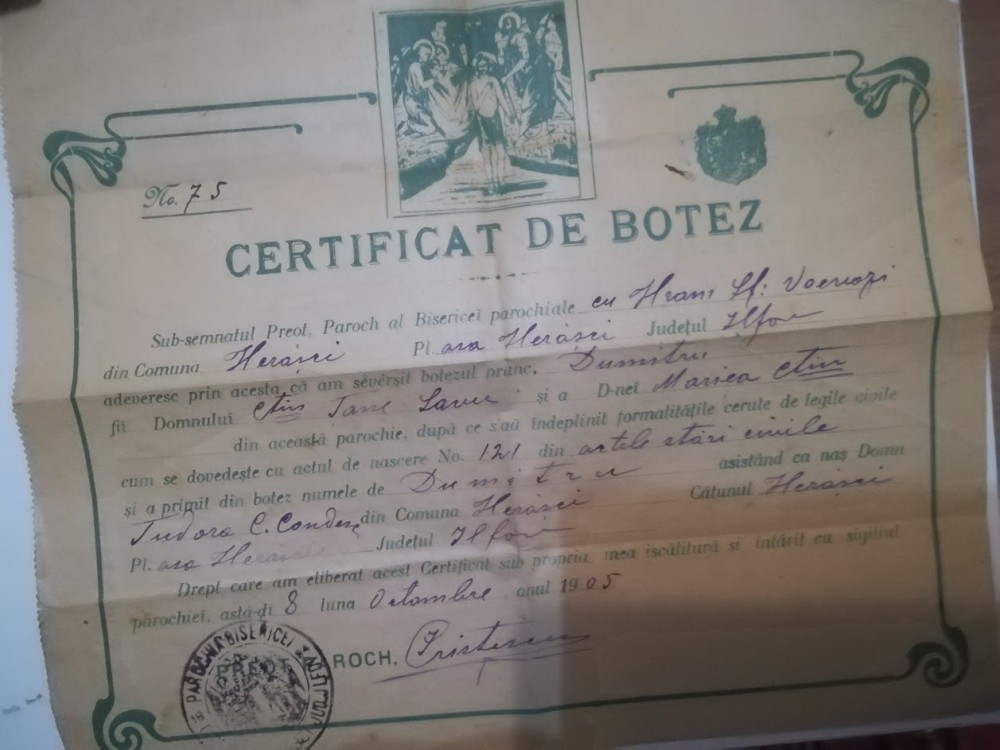 No. 75
CERTIFICAT DE BOTEZ
Sub-semnatul Preot, Paroch al Bisericei parochiale cu Hram Sf: Voevozi
din Comuna Herăsci Pl. asa Herăsci Județul Ilfov
adeveresc prin acesta că am sêvêrșit botezul prunc. Dumitru
fii Domnului Savu și a D-nei Mariea
din această parochie, după ce s'aŭ îndeplinit formalitățile cerute de legile civile
cum se dovedește cu actul de nascere No. 121 din actele stări civile
și a primit din botez numele de Dumitru asistând ca naș Domn
Tudora C. din Comuna Herăsci Cătunul Herăsci
Pl. asa Herăsci Județul Ilfov
Drept care am eliberat acest Certificat sub propria mea iscălitură si întărit cu sigiliul
parochiei, astă-di 8 luna Octombre anul 1905
PAROCHIA BISERICEI
PREOT
ROCH, Cristescu